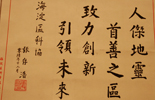 人傑地靈
首善之區
致力創新
引領未來
海淀區科協